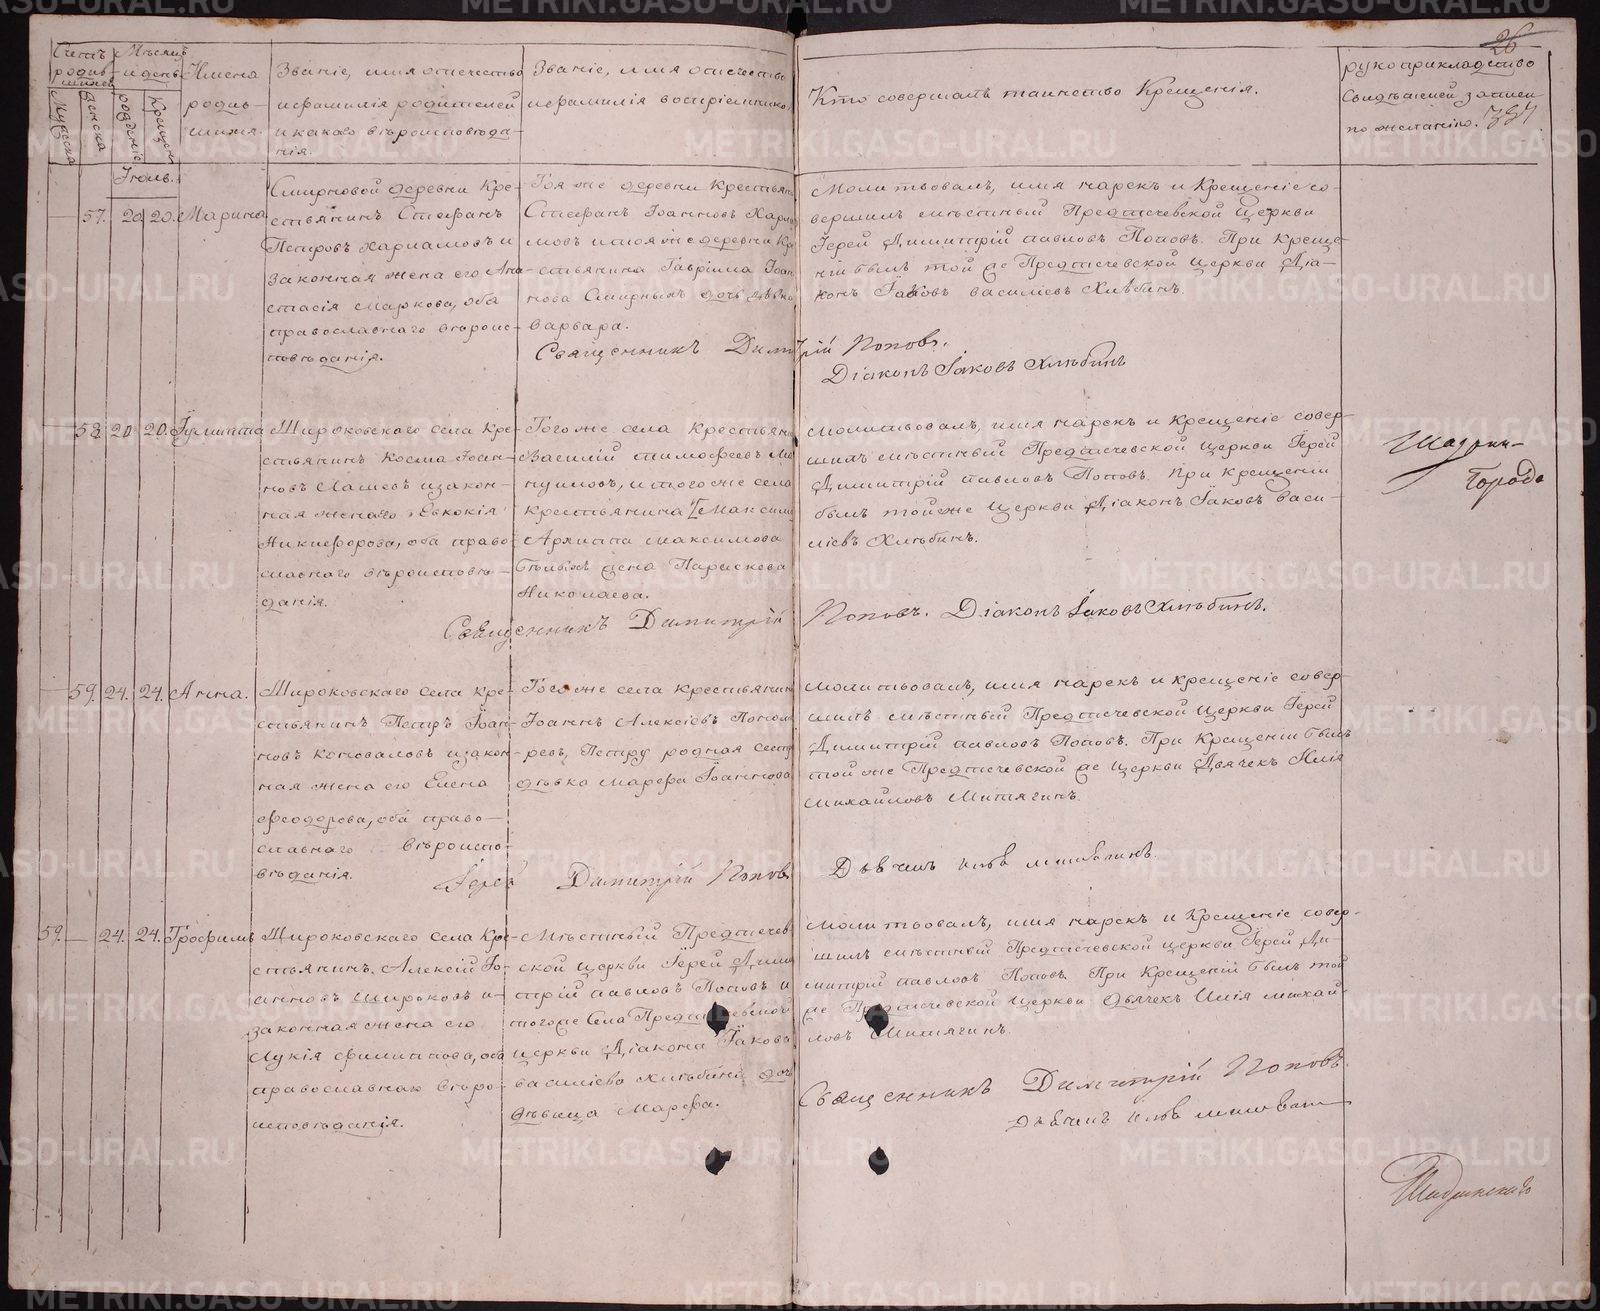 26
384
Счетъ родившихся
Мужеска
Женска
Мѣсяцъ и день
рожденіе
Крещен
Имена родившихся.
Званіе, имя отечество и фамилія родителей и какого вѣроисповѣданія.
Званіе, имя отечество и фамилія воспріемниковъ
Кто совершалъ таинство Крещенія.
рукоприкладство свидѣтелей записи по желанію.
Іюнь.
57. 20 20. Марина
Смирновой деревни Кре-
стьянинъ Стефанъ
Петровъ Харламовъ и
законная жена его Ана-
стасія Маркова, оба
православнаго вѣроис-
повѣданія.
Тоя же деревни крестьян
Стефанъ Іоанновъ Харла
мовъ и тоя же деревни Кр
стьянина Гавріила Іоан
нова Смирныхъ дочь дѣвка
варвара.
Молитвовалъ, имя нарекъ и Крещеніе со-
вершилъ мѣстный Предтечевской церкви
Іерей Димитрій павловъ Поповъ. При Креще-
ніи былъ той же Предтечевской церкви Діа-
конъ Іаковъ василіевъ Хлѣбинъ.
Священникъ Димитрій Поповъ.
Діаконъ Іаковъ Хлѣбинъ
58 20 20. Іулитта
Широковскаго села Кре-
стьянинъ Косма Іоан-
новъ Лашевъ и закон-
ная жена го Евкокія
Никифорова, оба право-
славнаго вѣроисповѣ-
данія.
Того же села Крестьян
Василій тимофеевъ
и того же села
крестьянина
Архиппа максимова
жена Параскева
Николаева.
Молитвовалъ, имя нарекъ и крещеніе совер-
шилъ мѣстный Предтечевской церкви Іерей
Димитрій павловъ Поповъ. При крещеніи
былъ той же церкви Діаконъ Іаковъ васи-
ліевъ Хлѣбинъ.
Священникъ Димитрій Поповъ. Діаконъ Іаковъ Хлѣбинъ.
59. 24. 24. Анна.
Широковскаго села кре-
стьянинъ Петръ Іоан-
новъ коноваловъ и закон-
ная жена его Елена
феодорова, оба право-
славнаго вѣроиспо-
вѣданія.
Того же села крестьянин
Іоаннъ Алексіевъ
Петру родная сест
дѣвка марфа Іоаннова
Молитвовалъ, имя нарекъ и крещеніе совер-
шилъ мѣстный Предтечевской церкви Іерей
Димитрій павловъ Поповъ. При Крещеніи былъ
той же Предтечевской же церкви Дьячекъ Илія
михайловъ Митягинъ.
Іерей Димитрій Поповъ
59. 24. 24. Трофимъ
Широковскаго села Кре-
стьянинъ Алексій Іо-
анновъ Широковъ и
законная жена его
Лукія филиппова, оба
православнаго вѣро-
исповѣданія.
Мѣстный Предтечев
ской церкви Іерей Дими
трій павловъ Поповъ и
того же села Предтечевской
церкви Діакона Іакова
василіева хлѣбина дочь
дѣвица Марфа.
Молитвовалъ, имя нарекъ и Крещеніе совер-
шилъ мѣстный Предтечевской церкви Іерей Ди-
митрій павловъ Поповъ. При Крещеніи былъ той
же Предтечевской церкви дьячекъ Илія михай-
ловъ Митягинъ.
Священникъ Димитрій Поповъ.
METRIKI.GASO-URAL.RU